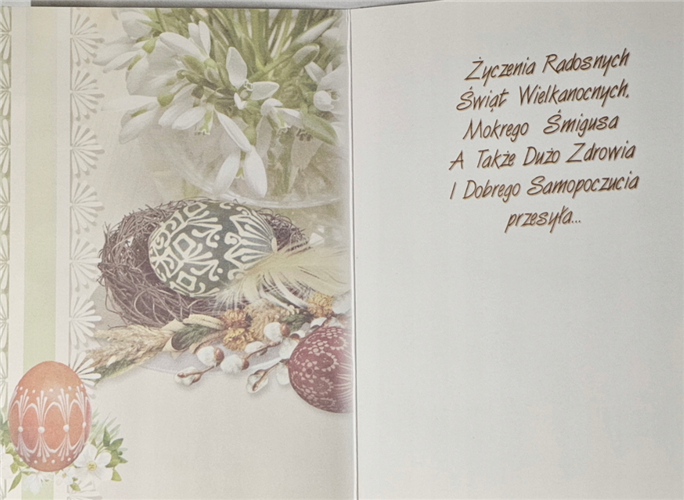 Życzenia Radosnych
Świąt Wielkanocnych.
Mokrego Śmigusa
A Także Dużo Zdrowia
I Dobrego Samopoczucia
przesyła...